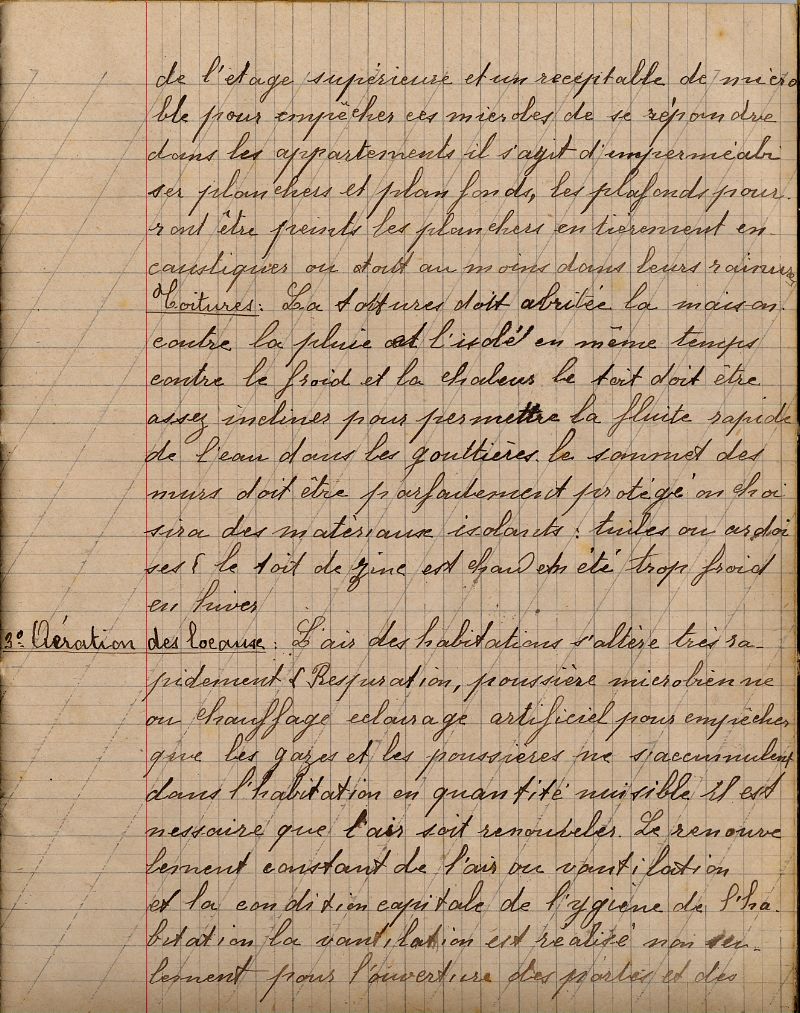 de l'étage supérieure et un receptable de micro
ble pour empêcher ces microbes de se répondre
dans les appartements il s'agit d'imperméabi
ser planchers et planfonds, les plafonds pour.
ront être peints les planchers entièrement en-
caustiquer ou tout au moins dans leurs rainures
Toitures: La toitures doit abritée la maison.
contre la pluie et l'isolé en même temps
contre le froid et la chaleur le toit doit être
assez incliner pour permettre la fluite rapide
de l'eau dans les gouttières. le sommet des
murs doit être parfaitement protégé on choi
sira des matériause isolants: tuiles ou ardoi
ses ( le toit de zinc est chaud en été trop froid
en hiver
3º Aération des locause: L'air des habitations s'altère très ra-
pidement ( Respiration, poussière microbienne
ou chauffage eclairage artificiel pour empêcher
que les gazes et les poussières ne s'accumulent
dans l'habitation en quantité nuisible il est
nessaire que l'air soit renouveler. Le renouve
lement constant de l'air ou vantilation
et la condition capitale de l'ygiène de l'ha.
bitation la vantilation est réalisé non seu-
lement pour l'ouverture des portes et des